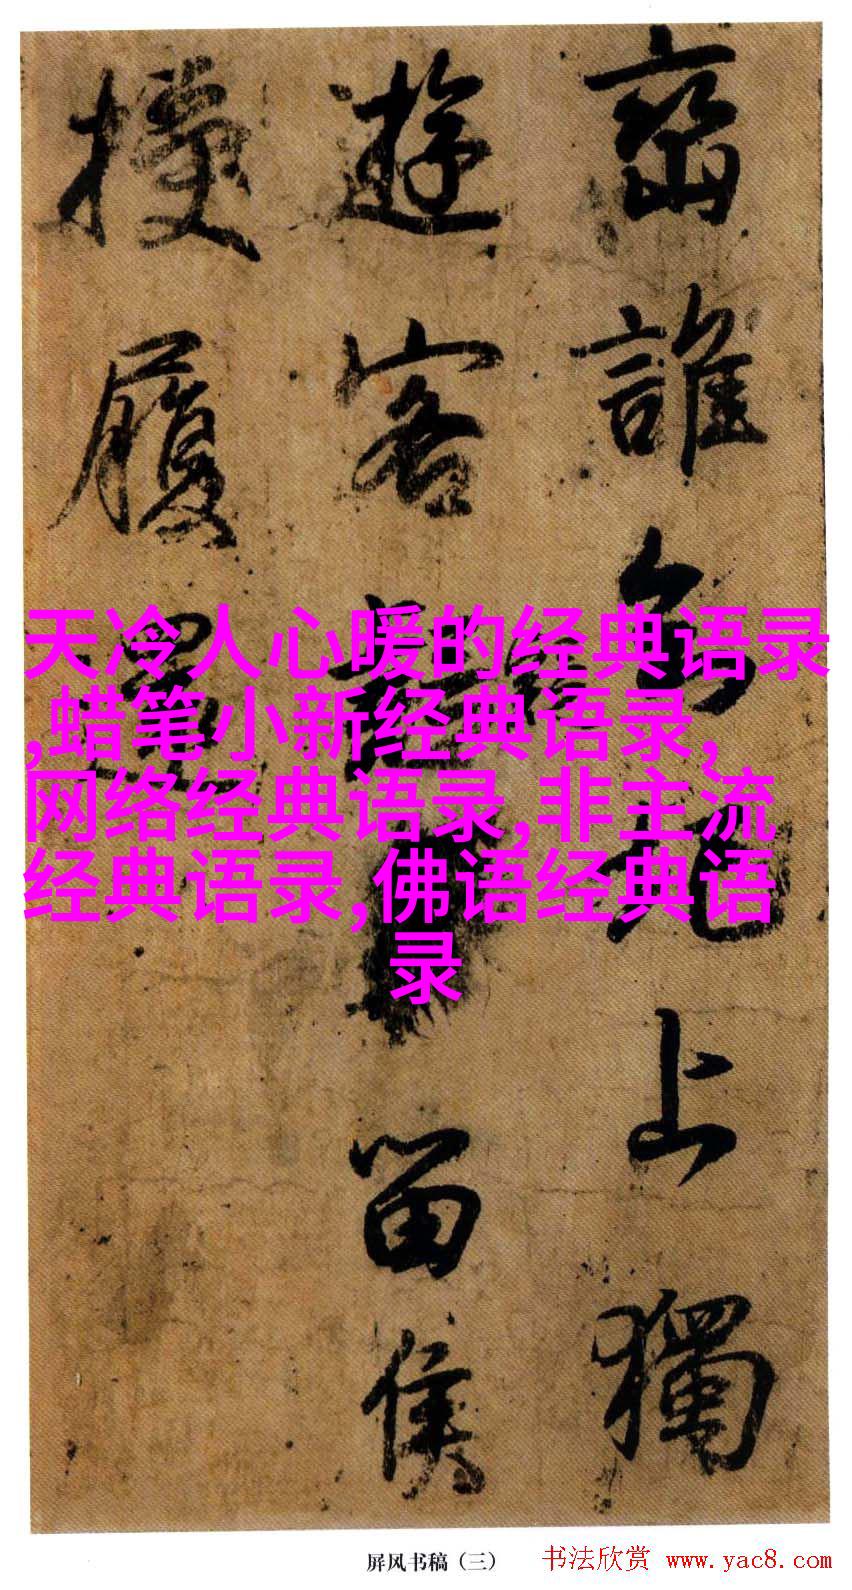 天冷人心暖的经典语录
,蜡笔小新经典语录,
网络经典语录,非主流
经典语录,佛语经典语
录
誰 上獨
遊客 留侯
履
屏风书稿（三）
书法欣赏 www.yac8.com